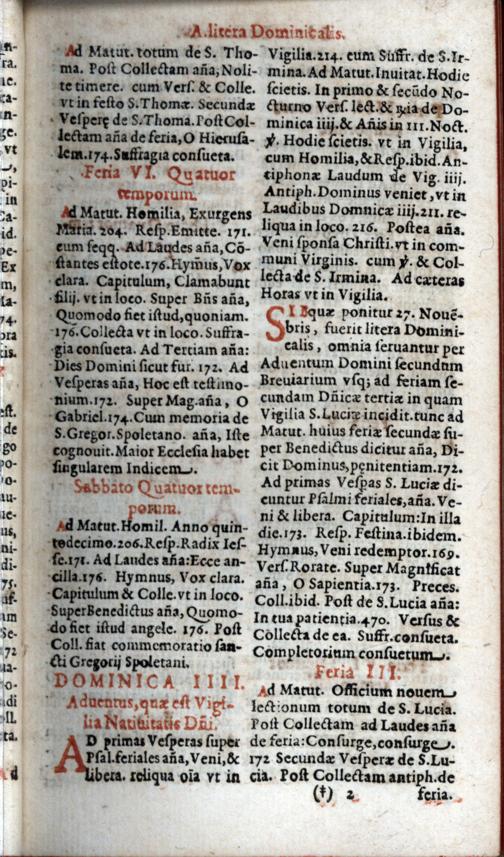 A. litera Dominicalis.
Ad Matut. totum de S. Tho-
ma. Post Collectam aña, Noli-
te timere. cum Vers. & Colle.
vt in festo S. Thomæ. Secundæ
Vesperę de S. Thoma. Post Col-
lectam aña de feria, O Hierusa-
lem. 174. Suffragia consueta.
Feria VI. Quatuor
temporum.
Ad Matut. Homilia, Exurgens
Maria. 204. Resp. Emitte. 171.
cum seqq. Ad Laudes aña, Cō-
stantes estote. 176. Hymnus, Vox
clara. Capitulum, Clamabunt
filij. vt in loco. Super Bñs aña,
Quomodo fiet istud, quoniam.
176. Collecta vt in loco. Suffra-
gia consueta. Ad Tertiam aña:
Dies Domini sicut fur. 172. Ad
Vesperas aña, Hoc est testimo-
nium. 172. Super Mag. aña, O
Gabriel. 174. Cum memoria de
S. Gregor. Spoletano. aña, Iste
cognouit. Maior Ecclesia habet
singularem Indicem.
Sabbato Quatuor tem-
porum.
Ad Matut. Homil. Anno quin-
todecimo. 206. Resp. Radix Ies-
se. 171. Ad Laudes aña: Ecce an-
cilla. 176. Hymnus, Vox clara.
Capitulum & Colle. vt in loco.
Super Benedictus aña, Quomo-
do fiet istud angele. 176. Post
Coll. fiat commemoratio san-
cti Gregorij Spoletani.
DOMINICA IIII.
Aduentus, quæ est Vigi-
lia Natiuitatis Dñi.
AD primas Vesperas super
Psal. feriales aña, Veni, &
libera. reliqua oīa vt in
Vigilia. 214. cum Suffr. de S. Ir-
mina. Ad Matut. Inuitat. Hodie
scietis. In primo & secūdo No-
cturno Vers. lect. & ℟ia de Do-
minica iiij. & Añis in III. Noct.
℣. Hodie scietis. vt in Vigilia,
cum Homilia, & Resp. ibid. An-
tiphonæ Laudum de Vig. iiij.
Antiph. Dominus veniet, vt in
Laudibus Domnicæ iiij. 211. re-
liqua in loco. 216. Postea aña.
Veni sponsa Christi. vt in com-
muni Virginis. cum ℣. & Col-
lecta de S. Irmina. Ad cæteras
Horas vt in Vigilia.
SI Bquæ ponitur 27. Nouē-
bris, fuerit litera Domini-
calis, omnia seruantur per
Aduentum Domini secundum
Breuiarium vsq; ad feriam se-
cundam Dñicæ tertiæ in quam
Vigilia S. Luciæ incidit. tunc ad
Matut. huius feriæ secundæ su-
per Benedictus dicitur aña, Di-
cit Dominus, penitentiam. 172.
Ad primas Vespas S. Luciæ di-
cuntur Psalmi feriales, aña. Ve-
ni & libera. Capitulum: In illa
die. 173. Resp. Festina. ibidem.
Hymnus, Veni redemptor. 169.
Vers. Rorate. Super Magnificat
aña, O Sapientia. 173. Preces.
Coll. ibid. Post de S. Lucia aña:
In tua patientia. 470. Versus &
Collecta de ea. Suffr. consueta.
Completorium consuetum.
Feria III.
Ad Matut. Officium nouem
lectionum totum de S. Lucia.
Post Collectam ad Laudes aña
de feria: Consurge, consurge.
172 Secundæ Vesperæ de S. Lu-
cia. Post Collectam antiph. de
(†) 2 feria.